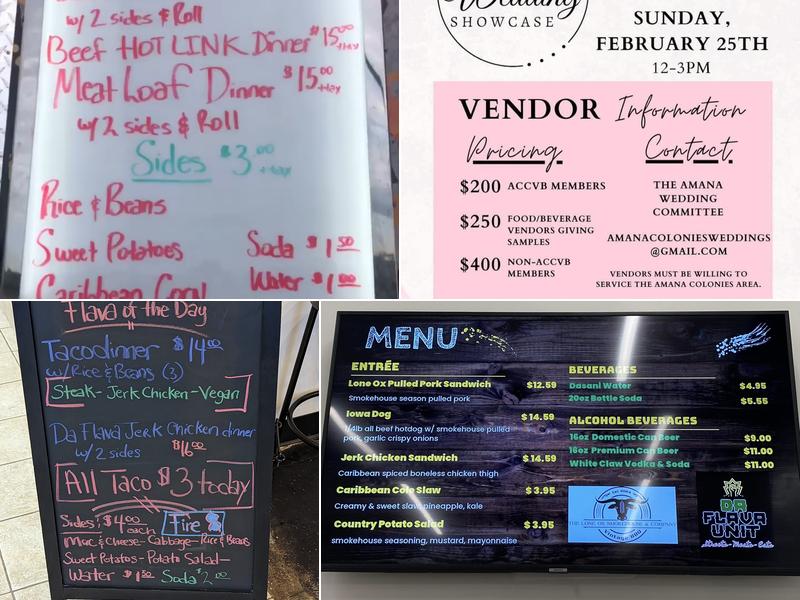 w/ 2 sides & Roll
Beef HOT LINK Dinner $15.00 +tax
Meat Loaf Dinner $15.00 +tax
w/ 2 sides & Roll
Sides $3.00 +tax
Rice & Beans
Sweet Potatoes Soda $1.50
Caribbean Corn Water $1.00
Wedding
SHOWCASE
SUNDAY,
FEBRUARY 25TH
12-3PM
VENDOR Information
Pricing
$200 ACCVB MEMBERS
$250 FOOD/BEVERAGE
VENDORS GIVING
SAMPLES
$400 NON-ACCVB
MEMBERS
Contact
THE AMANA
WEDDING
COMMITTEE
AMANACOLONIESWEDDINGS
@GMAIL.COM
VENDORS MUST BE WILLING TO
SERVICE THE AMANA COLONIES AREA.
Flava of the Day
Taco dinner $14.00
w/ Rice & Beans (3)
Steak - Jerk Chicken - Vegan
Da Flava Jerk Chicken dinner
w/ 2 sides $16.00
All Taco $3 today
Sides: $4.00 each Fire
Mac & Cheese - Cabbage - Rice & Beans
Sweet Potatos - Potato Salad -
Water $1.50 Soda $2.00
MENU
ENTRÉE
Lone Ox Pulled Pork Sandwich $12.59
Smokehouse season pulled pork
Iowa Dog $14.59
1/4lb all beef hotdog w/ smokehouse pulled
pork, garlic crispy onions
Jerk Chicken Sandwich $14.59
Caribbean spiced boneless chicken thigh
Caribbean Cole Slaw $3.95
Creamy & sweet slaw pineapple, kale
Country Potato Salad $3.95
smokehouse seasoning, mustard, mayonnaise
BEVERAGES
Dasani Water $4.95
20oz Bottle Soda $5.55
ALCOHOL BEVERAGES
16oz Domestic Can Beer $9.00
16oz Premium Can Beer $11.00
White Claw Vodka & Soda $11.00
THE LONE OX SMOKEHOUSE & COMPANY
Vintage BBQ
DA
FLAVA
UNIT
Streets-Meats-Eats